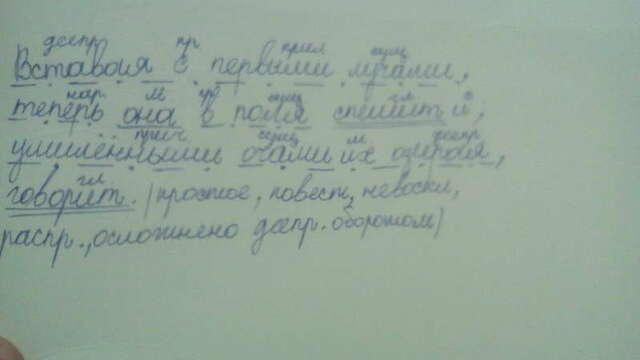 деепр. пр прил сущ
Вставая с первыми лучами,
нар. м пр сущ гл
теперь она в поля спешит и,
прич сущ м деепр
умилёнными очами их озирая,
гл
говорит. (простое, повест, невоскл,
распр., осложнено деепр. оборотом)